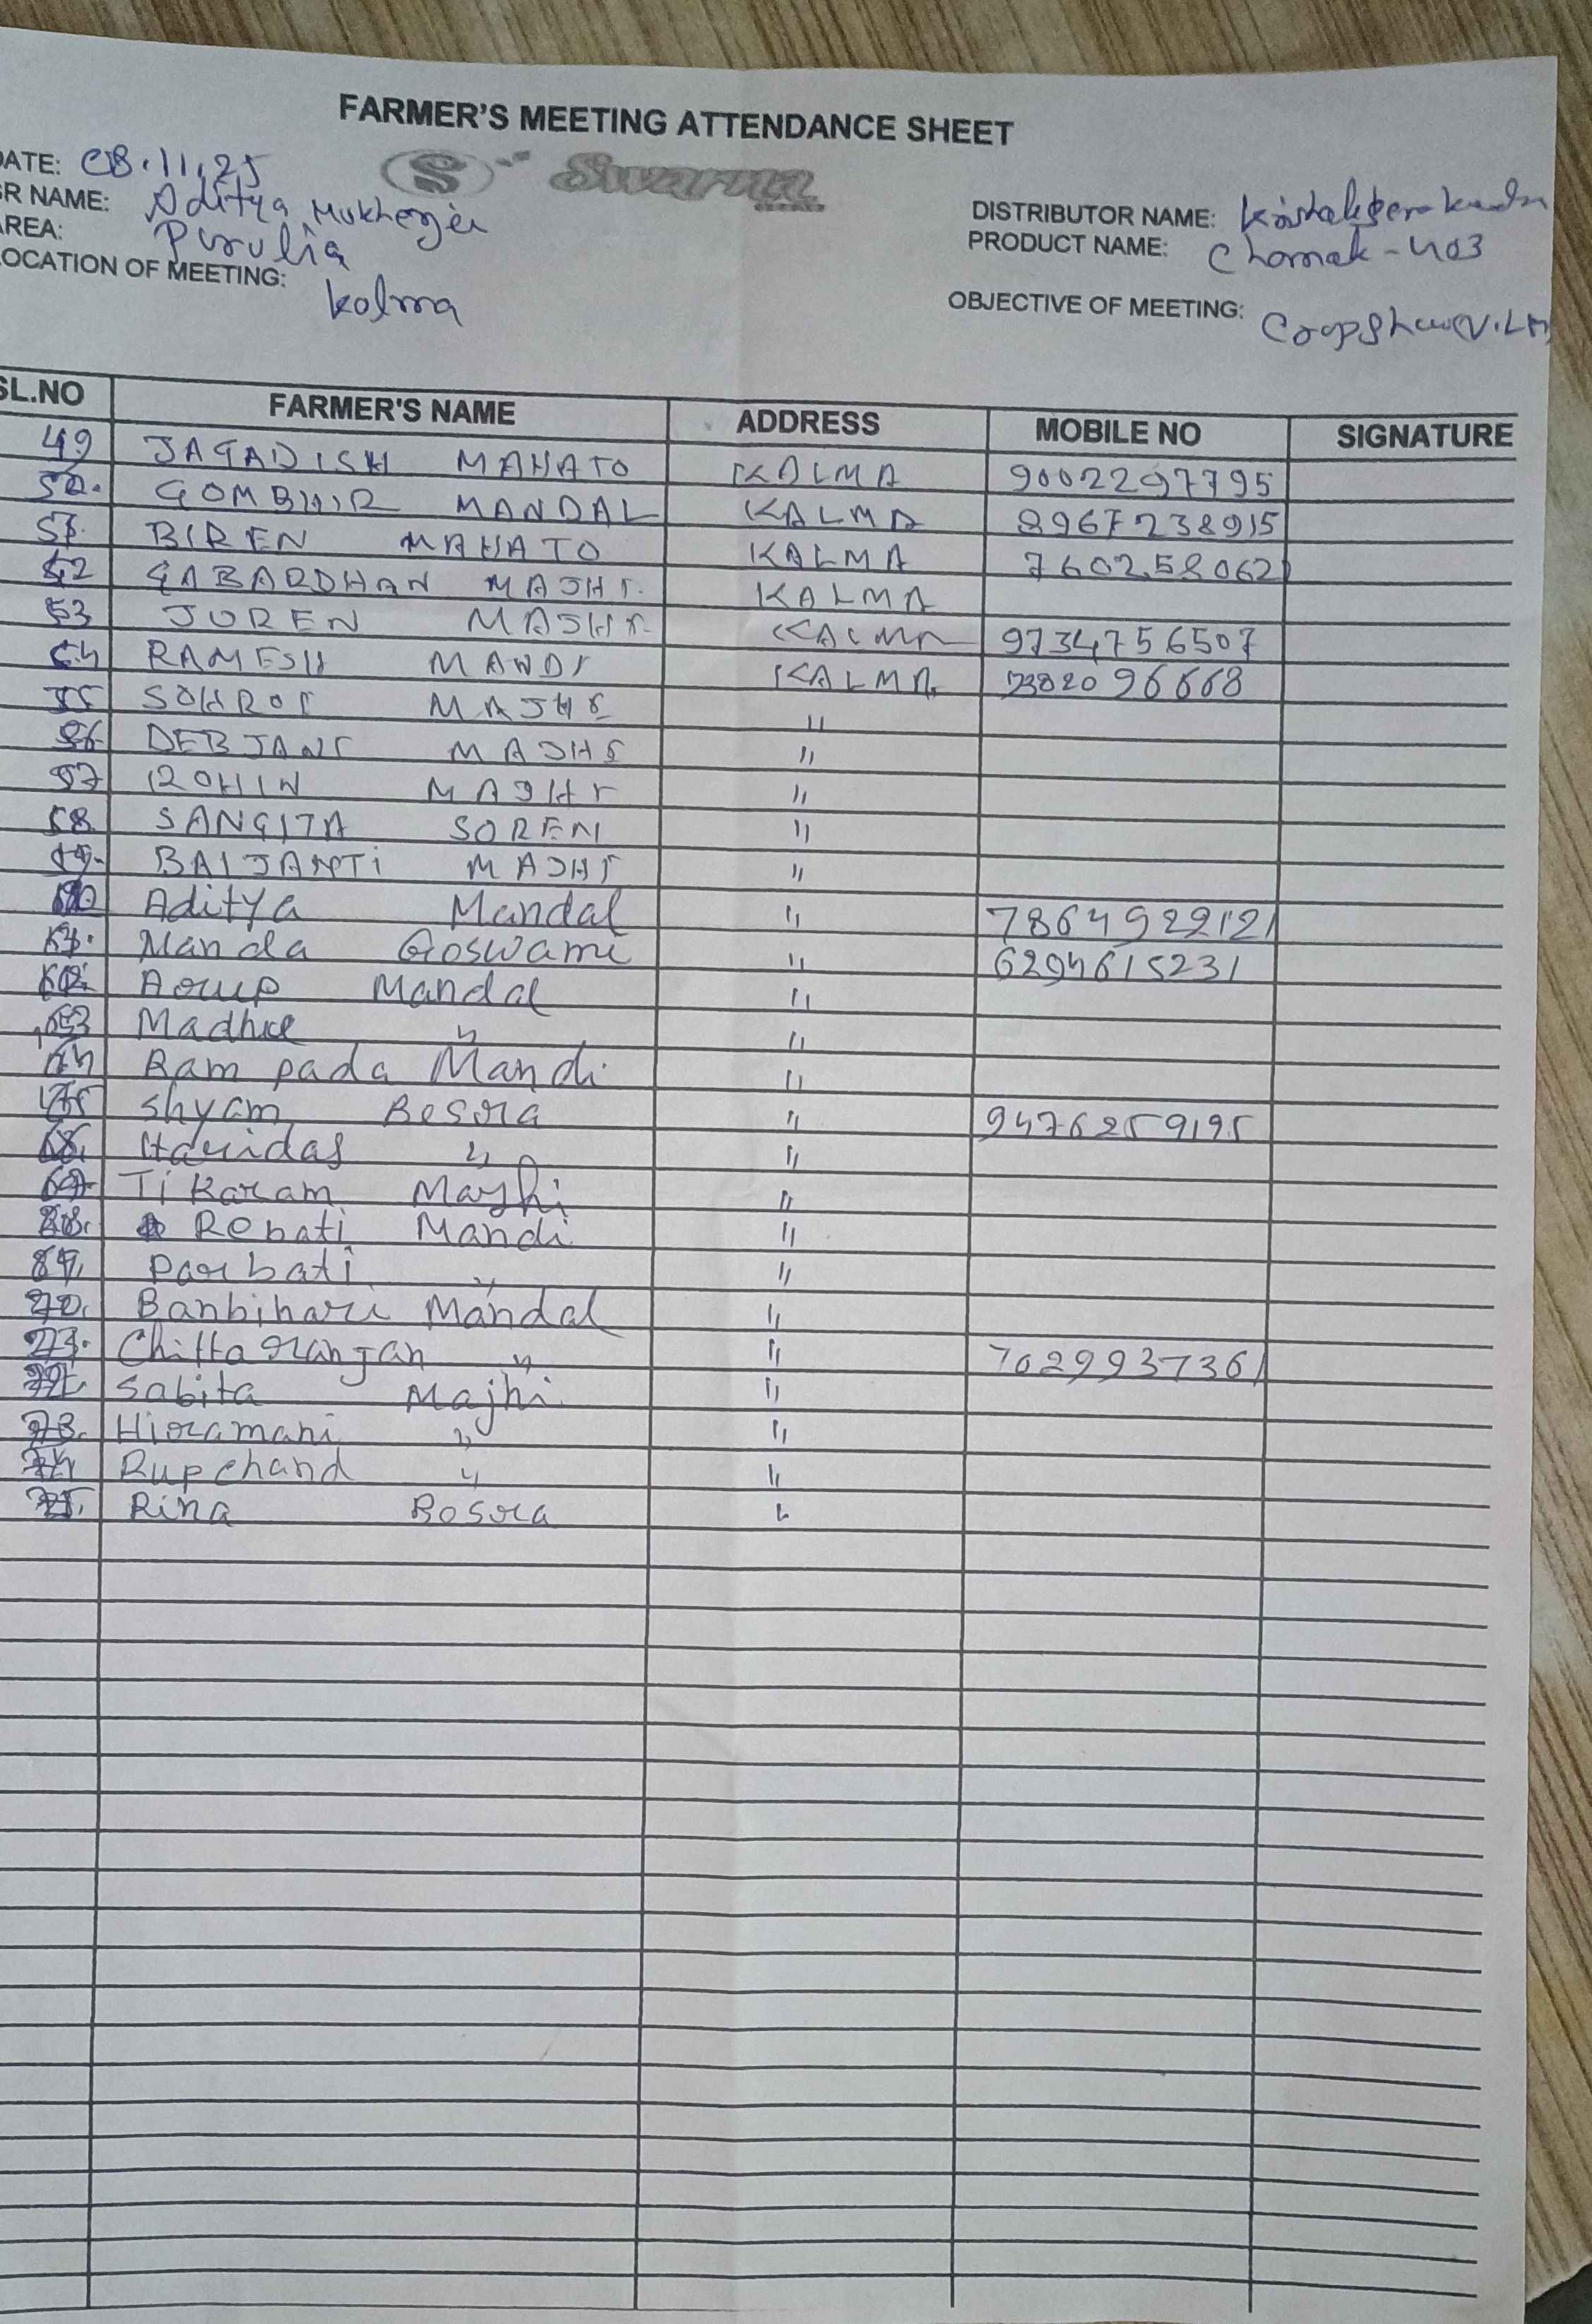 FARMER'S MEETING ATTENDANCE SHEET
Swarna
DATE: 08.11.25
SR NAME: Aditya Mukherjee
AREA: Purulia
LOCATION OF MEETING: kolma
DISTRIBUTOR NAME:
PRODUCT NAME: Chamak-403
OBJECTIVE OF MEETING:
SL.NO FARMER'S NAME ADDRESS MOBILE NO SIGNATURE
49 JAGADISH MAHATO KALMA 9002297795
50. GOMBHIR MANDAL KALMA 8967238915
51. BIREN MAHATO KALMA 760258062
52 GABARDHAN MAJHI. KALMA
53 JUREN MAJHI KALMA 9734756507
54 RAMESH MANDI KALMA 96668
55 SOHROI MAJHI "
56 DEBJANI MAJHI "
57 ROHIN MAJHI "
58. SANGITA SOREN "
59. BAIJANTI MAJHI "
60 Aditya Mandal " 7864922121
61. Manda Goswami " 6294615231
62. Aorup Mandal "
63 Madhu " "
64 Ram pada Mandi "
65 Shyam Besra " 9476259195
66. Haridas " "
67. Tikaram Majhi "
68. Rebati Mandi "
69. Parbati " "
70. Banbihari Mandal "
71. Chittaranjan " " 7029937361
72. Sabita Majhi "
73. Hiramani " "
74 Rupchand " "
75. Rina Besra "